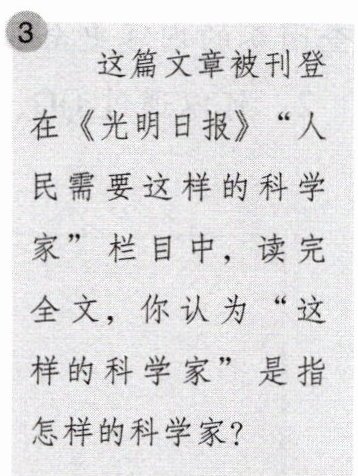 3
这篇文章被刊登
在《光明日报》“人
民需要这样的科学
家”栏目中，读完
全文，你认为“这
样的科学家”是指
怎样的科学家？